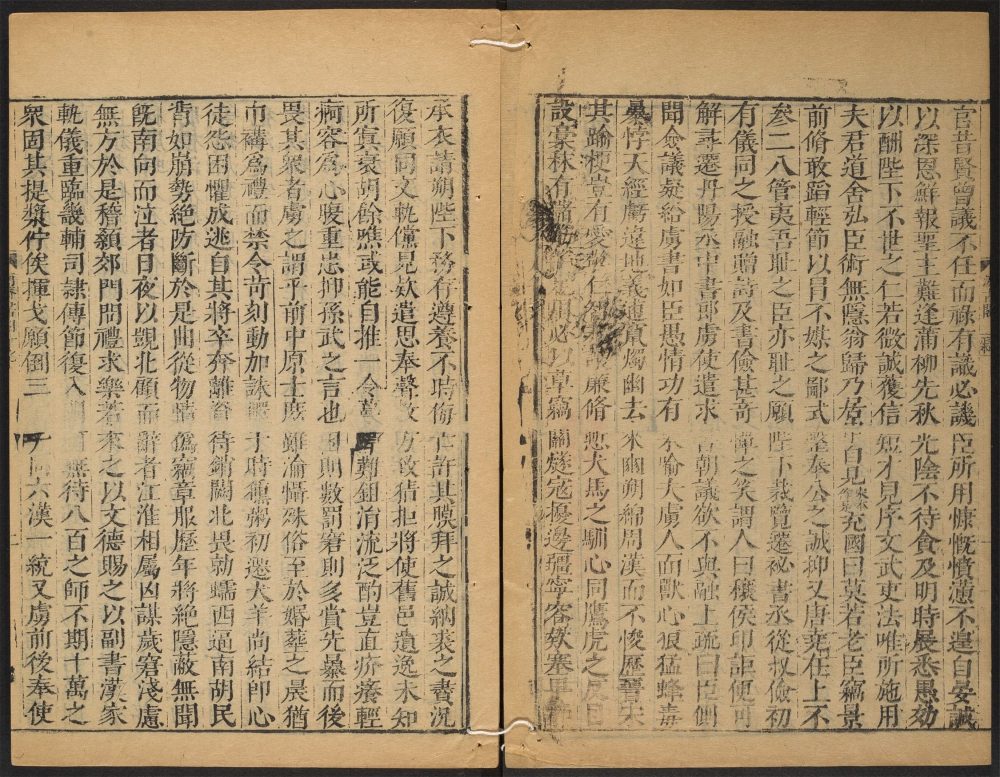 官昔賢曾議不任而祿有議必譏臣所用慷慨憤懣不遑自晏誠
以深恩鮮報聖主難逢蒲柳先秋光陰不待貪及明時展悉愚効
以酬陛下不世之仁若微誠獲信短才見序文武吏法唯所施用
夫君道含弘臣術無隱翁歸乃居中自見充國曰莫若老臣竊景
前脩敢蹈輕節以冒不媒之鄙式罄奉公之誠抑又唐堯在上不
參二八管夷吾恥之臣亦恥之願陛下裁覽遷祕書丞從叔儉初
有儀同之授融贈詩及書儉甚奇憚之笑謂人曰穰侯印詎便可
解尋遷丹陽丞中書郎虜使遣求書朝議欲不與融上疏曰臣側
聞僉議疑給虜書如臣愚情切有未喻夫虜人面獸心狼猛蜂毒
暴悖天經虧違地義逋竄燭幽去來幽朔綿周漢而不悛歷晉宋
其踰梗豈有愛敬仁智恭讓廉脩慙犬馬之馴心同鷹虎之反目
設槀秣有儲筋竿足用必以草竊關燧寇擾邊疆寧容款塞卑辭
承衣請朔陛下務存遵養不時侮亡許其膜拜之誠納裘之賚況
復願同文軌儻見款遣思奉聲教方致猜拒將使舊邑遺逸未知
所寘衰胡餘噍或能自推一令蔓草難鉏涓流泛酌豈直疥癢輕
痾容爲心腹重患抑孫武之言也困則數罰窘則多賞先暴而後
畏其衆者虜之謂乎前中原士庶雖淪懾殊俗至於婚葬之晨猶
巾褠爲禮而禁令苛刻動加誅轘于時獯粥初遷犬羊尚結即心
徒怨困懼成逃自其將卒奔離資待銷闕北畏勍蠕西逼南胡民
背如崩勢絕防斷於是曲從物情僞竊章服歷年將絕隱蔽無聞
旣南向而泣者日夜以覬北顧而辭者江淮相屬凶謀歲窘淺慮
無方於是稽顙郊門問禮求樂若來之以文德賜之以副書漢家
軌儀重臨畿輔司隸傳節復入河無待八百之師不期十萬之
衆固其提漿佇俟揮戈願倒三六漢一統又虜前後奉使